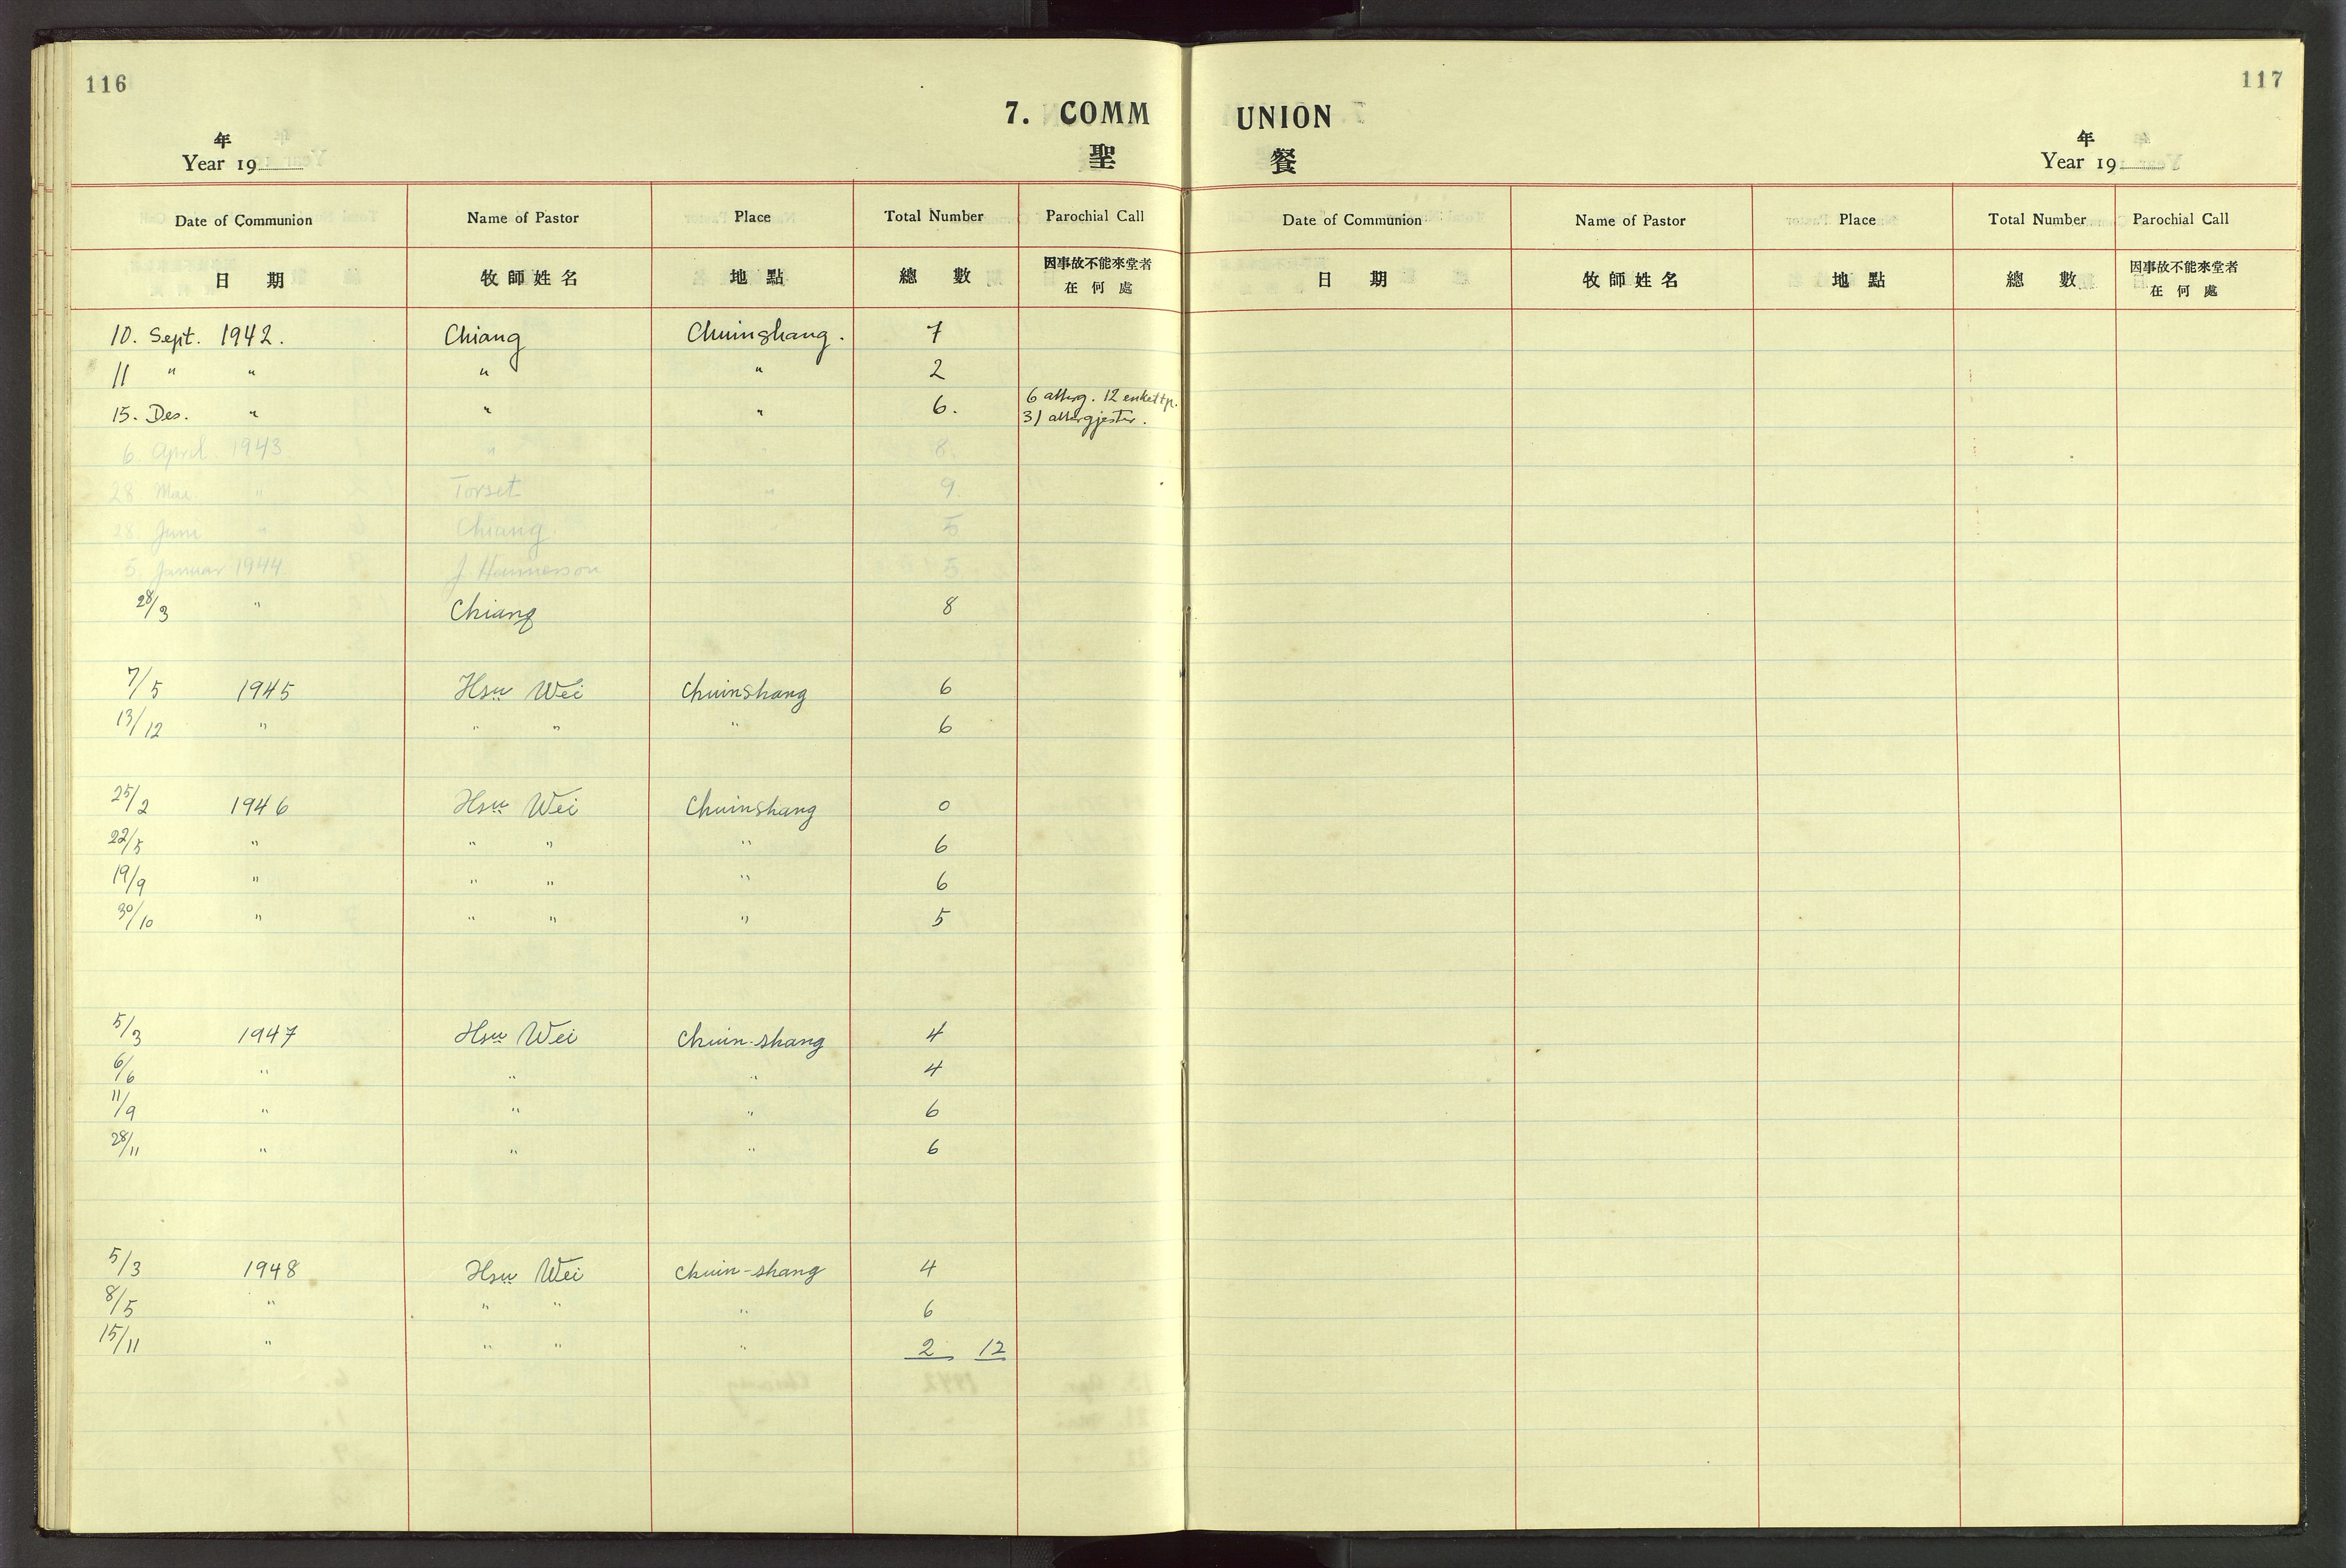 116
117
7. COMM UNION
聖 餐
年
Year 19
年
Year 19
Date of Communion Name of Pastor Place Total Number Parochial Call
日 期 牧師姓名 地點 總 數 因事故不能來堂者 在何處
Date of Communion Name of Pastor Place Total Number Parochial Call
日 期 牧師姓名 地點 總 數 因事故不能來堂者 在何處
10. Sept. 1942. Chiang Chuinshang. 7
11 " " " " 2
15. Des. " " " 6. 6 alterg. 12 enkeltp.
31 altergjester.
6. April 1943 " 8.
28. Mai " Torset " 9.
28. Juni " Chiang 5
5. Januar 1944 J. Hannesson 5
28/3 " Chiang 8
7/5 1945 Hsu Wei Chuinshang 6
13/12 " " " " 6
25/2 1946 Hsu Wei Chuinshang 0
22/5 " " " " 6
19/9 " " " " 6
30/10 " " " " 5
5/3 1947 Hsu Wei Chuin-shang 4
6/6 " " " 4
11/9 " " " 6
28/11 " " " 6
5/3 1948 Hsu Wei Chuin-shang 4
8/5 " " " " 6
15/11 " " " " 2 12